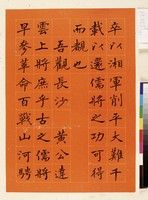 卒以湘軍削平大難千
載以還儒將之功可得
而覩也
吾觀長沙黃公達
雲上將庶乎古之儒將
早參革命百戰山河騁